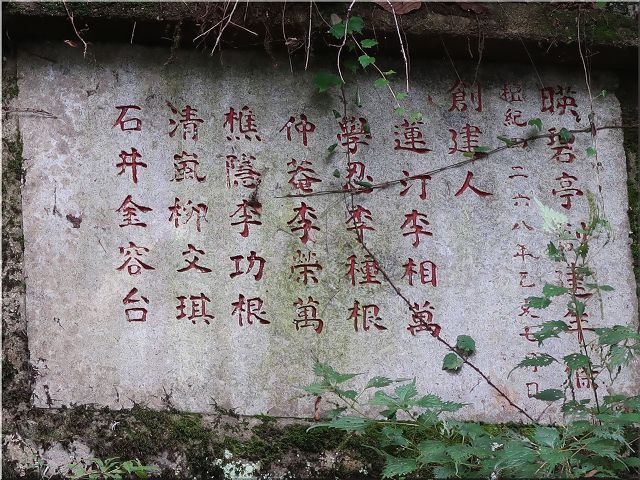 暎碧亭 建
檀紀四二六八年乙亥七 日
創建人
蓮汀李相萬
學忍李種根
仲菴李榮萬
樵隱李功根
清嵐柳文琪
石井金容台